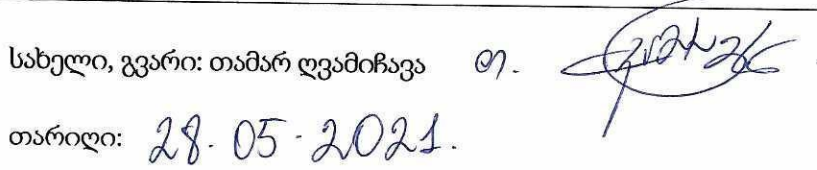 სახელი, გვარი: თამარ ღვამიჩავა თ.
თარიღი: 28.05.2021.